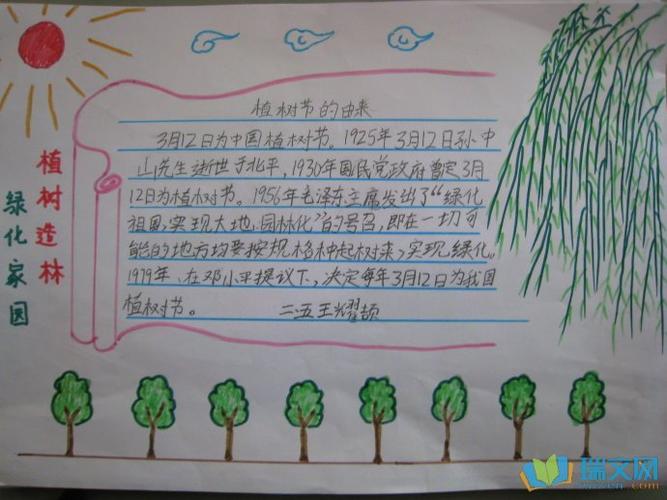 植树造林
绿化家园
植树节的由来
3月12日为中国植树节。1925年3月12日孙中
山先生逝世于北平，1930年国民党政府曾定3月
12日为植树节。1956年毛泽东主席发出了“绿化
祖国，实现大地园林化”的号召，即在一切可
能的地方均要按规格种起树来，实现绿化。
1979年、在邓小平提议下，决定每年3月12日为我国
植树节。 二.五王耀颉
瑞文网